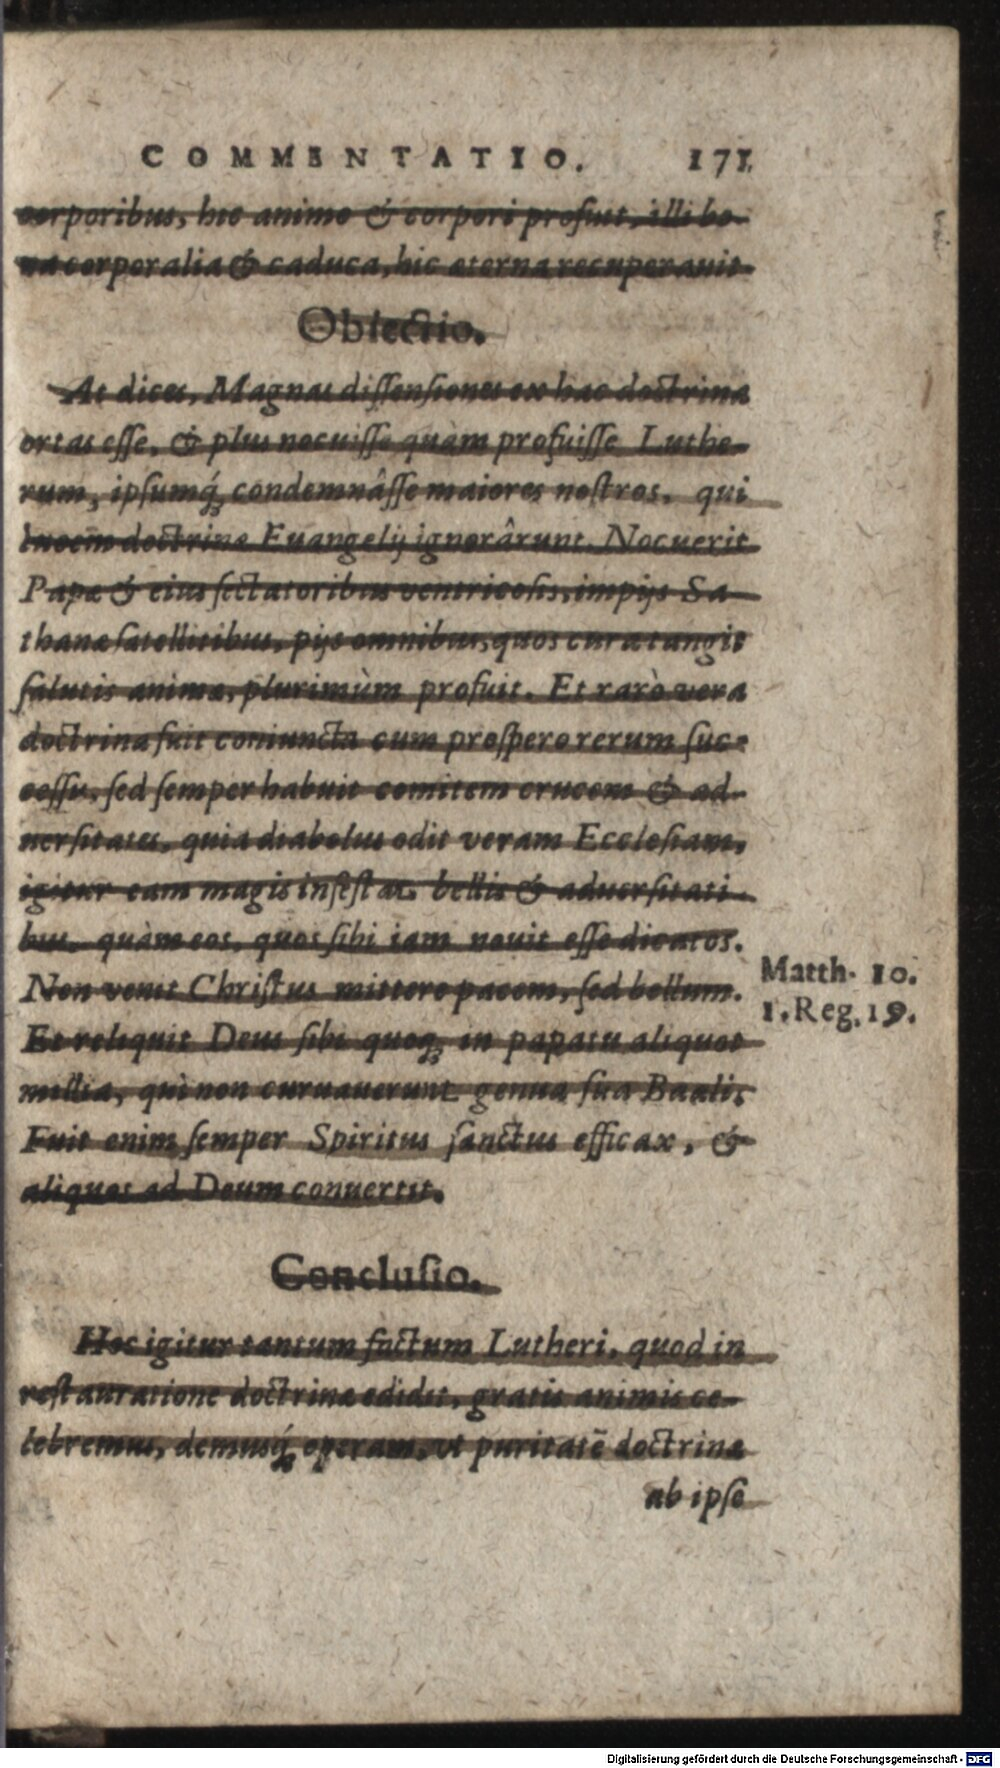 COMMENTATIO. 171
corporibus, hic animo & corpori profuit, illi bo-
na corporalia & caduca, hic æterna recuperauit.
Obiectio.
At dices, Magnas dissensiones ex hac doctrina
ortas esse, & plus nocuisse quàm profuisse Luthe-
rum, ipsumq́; condemnâsse maiores nostros, qui
lucem doctrinæ Euangelij ignorârunt. Nocuerit
Papæ & eius sectatoribus ventricosis, impijs Sa-
thanæ satellitibus, pijs omnibus, quos cura tangit
salutis animæ, plurimùm profuit. Et rarò vera
doctrina fuit coniuncta cum prospero rerum suc-
cessu, sed semper habuit comitem crucem & ad-
uersitates, quia diabolus odit veram Ecclesiam,
igitur eam magis infestat bellis & aduersitati-
bus, quàm eos, quos sibi iam nouit esse dicatos.
Non venit Christus mittere pacem, sed bellum.
Matth. 10.
Et reliquit Deus sibi quoq; in papatu aliquot
1. Reg. 19.
millia, qui non curuauerunt genua sua Baali.
Fuit enim semper Spiritus sanctus efficax, &
aliquos ad Deum conuertit.
Conclusio.
Hoc igitur tantum factum Lutheri, quod in
restauratione doctrinæ edidit, gratis animis ce-
lebremus, demusq́; operam, vt puritatē doctrinæ
ab ipso
Digitalisierung gefördert durch die Deutsche Forschungsgemeinschaft - DFG